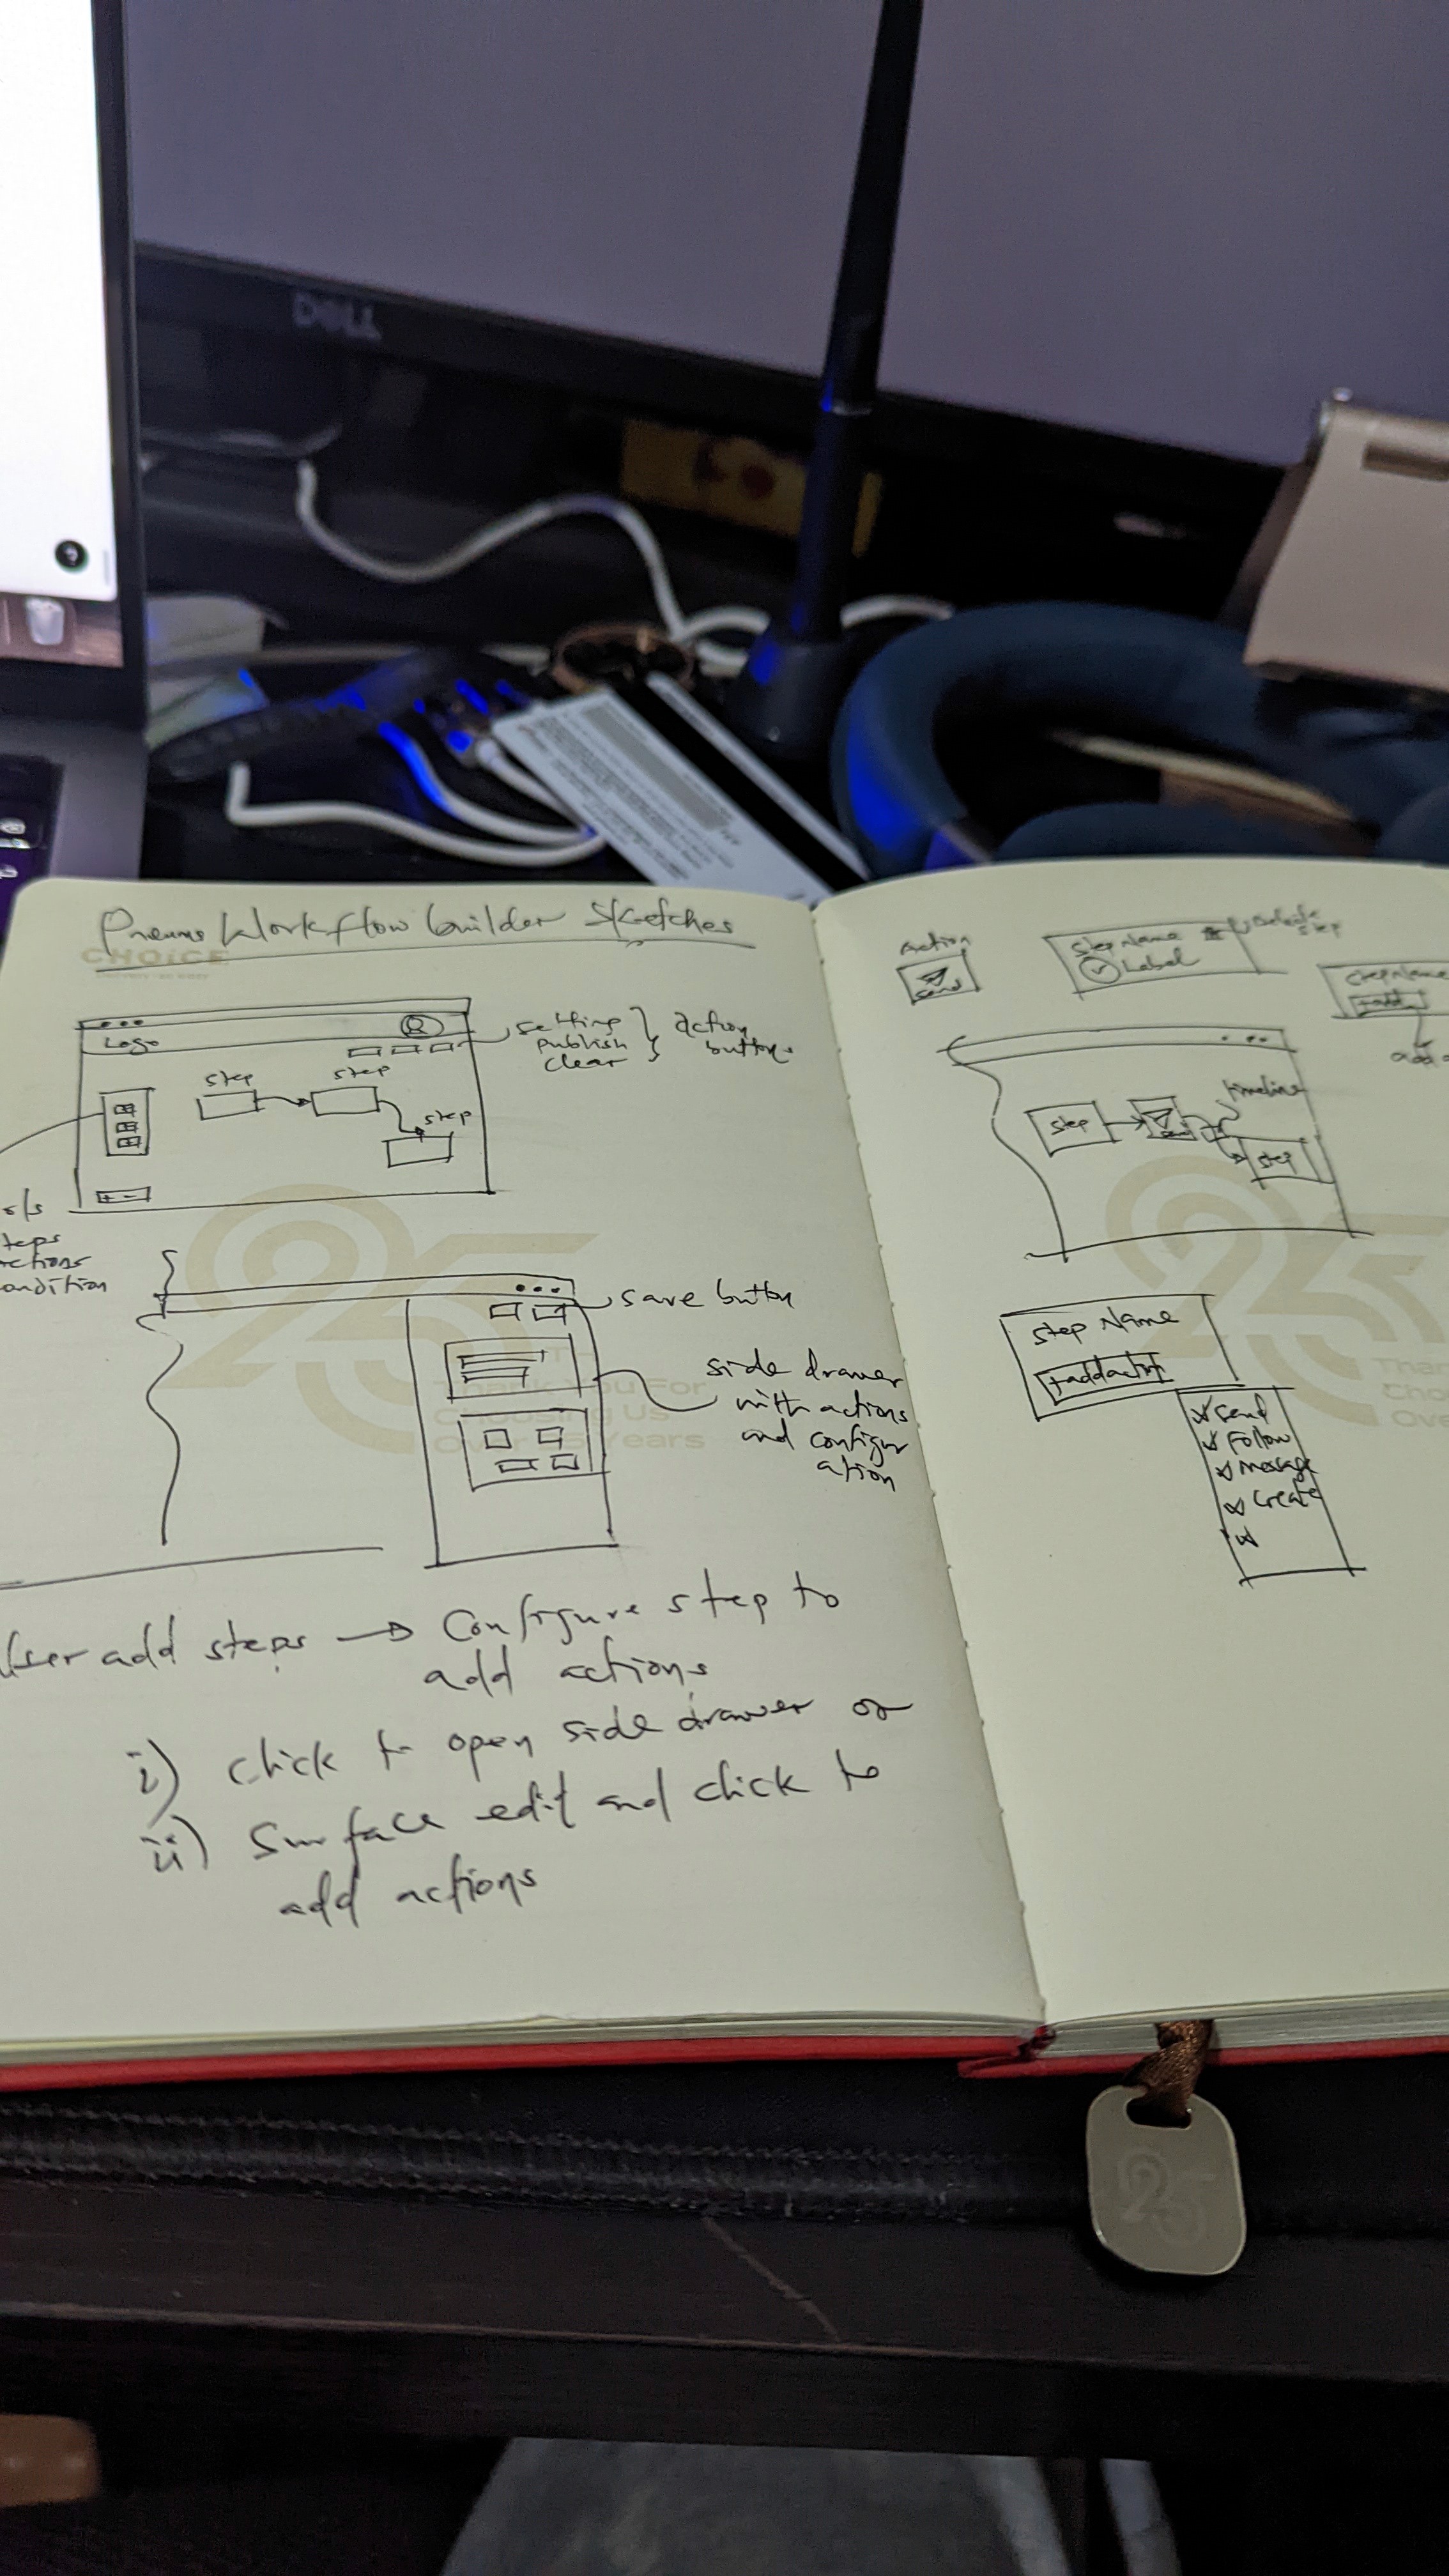 DELL
Workflow builder Sketches
CHOICE
Logo
setting
publish
clear
action
buttons
step
step
step
teps
ctions
ondition
save button
side drawer
with actions
and configur
ation
Thank You For
Choosing Us
Over 25 Years
User add steps → Configure step to
add actions
i) click to open side drawer or
ii) Surface edit and click to
add actions
Action
send
Step Name
Label
Delete
step
Step Name
+add
add
timeline
step
send
step
step Name
+add action
send
Follow
message
create
Than
Choo
Ove
25